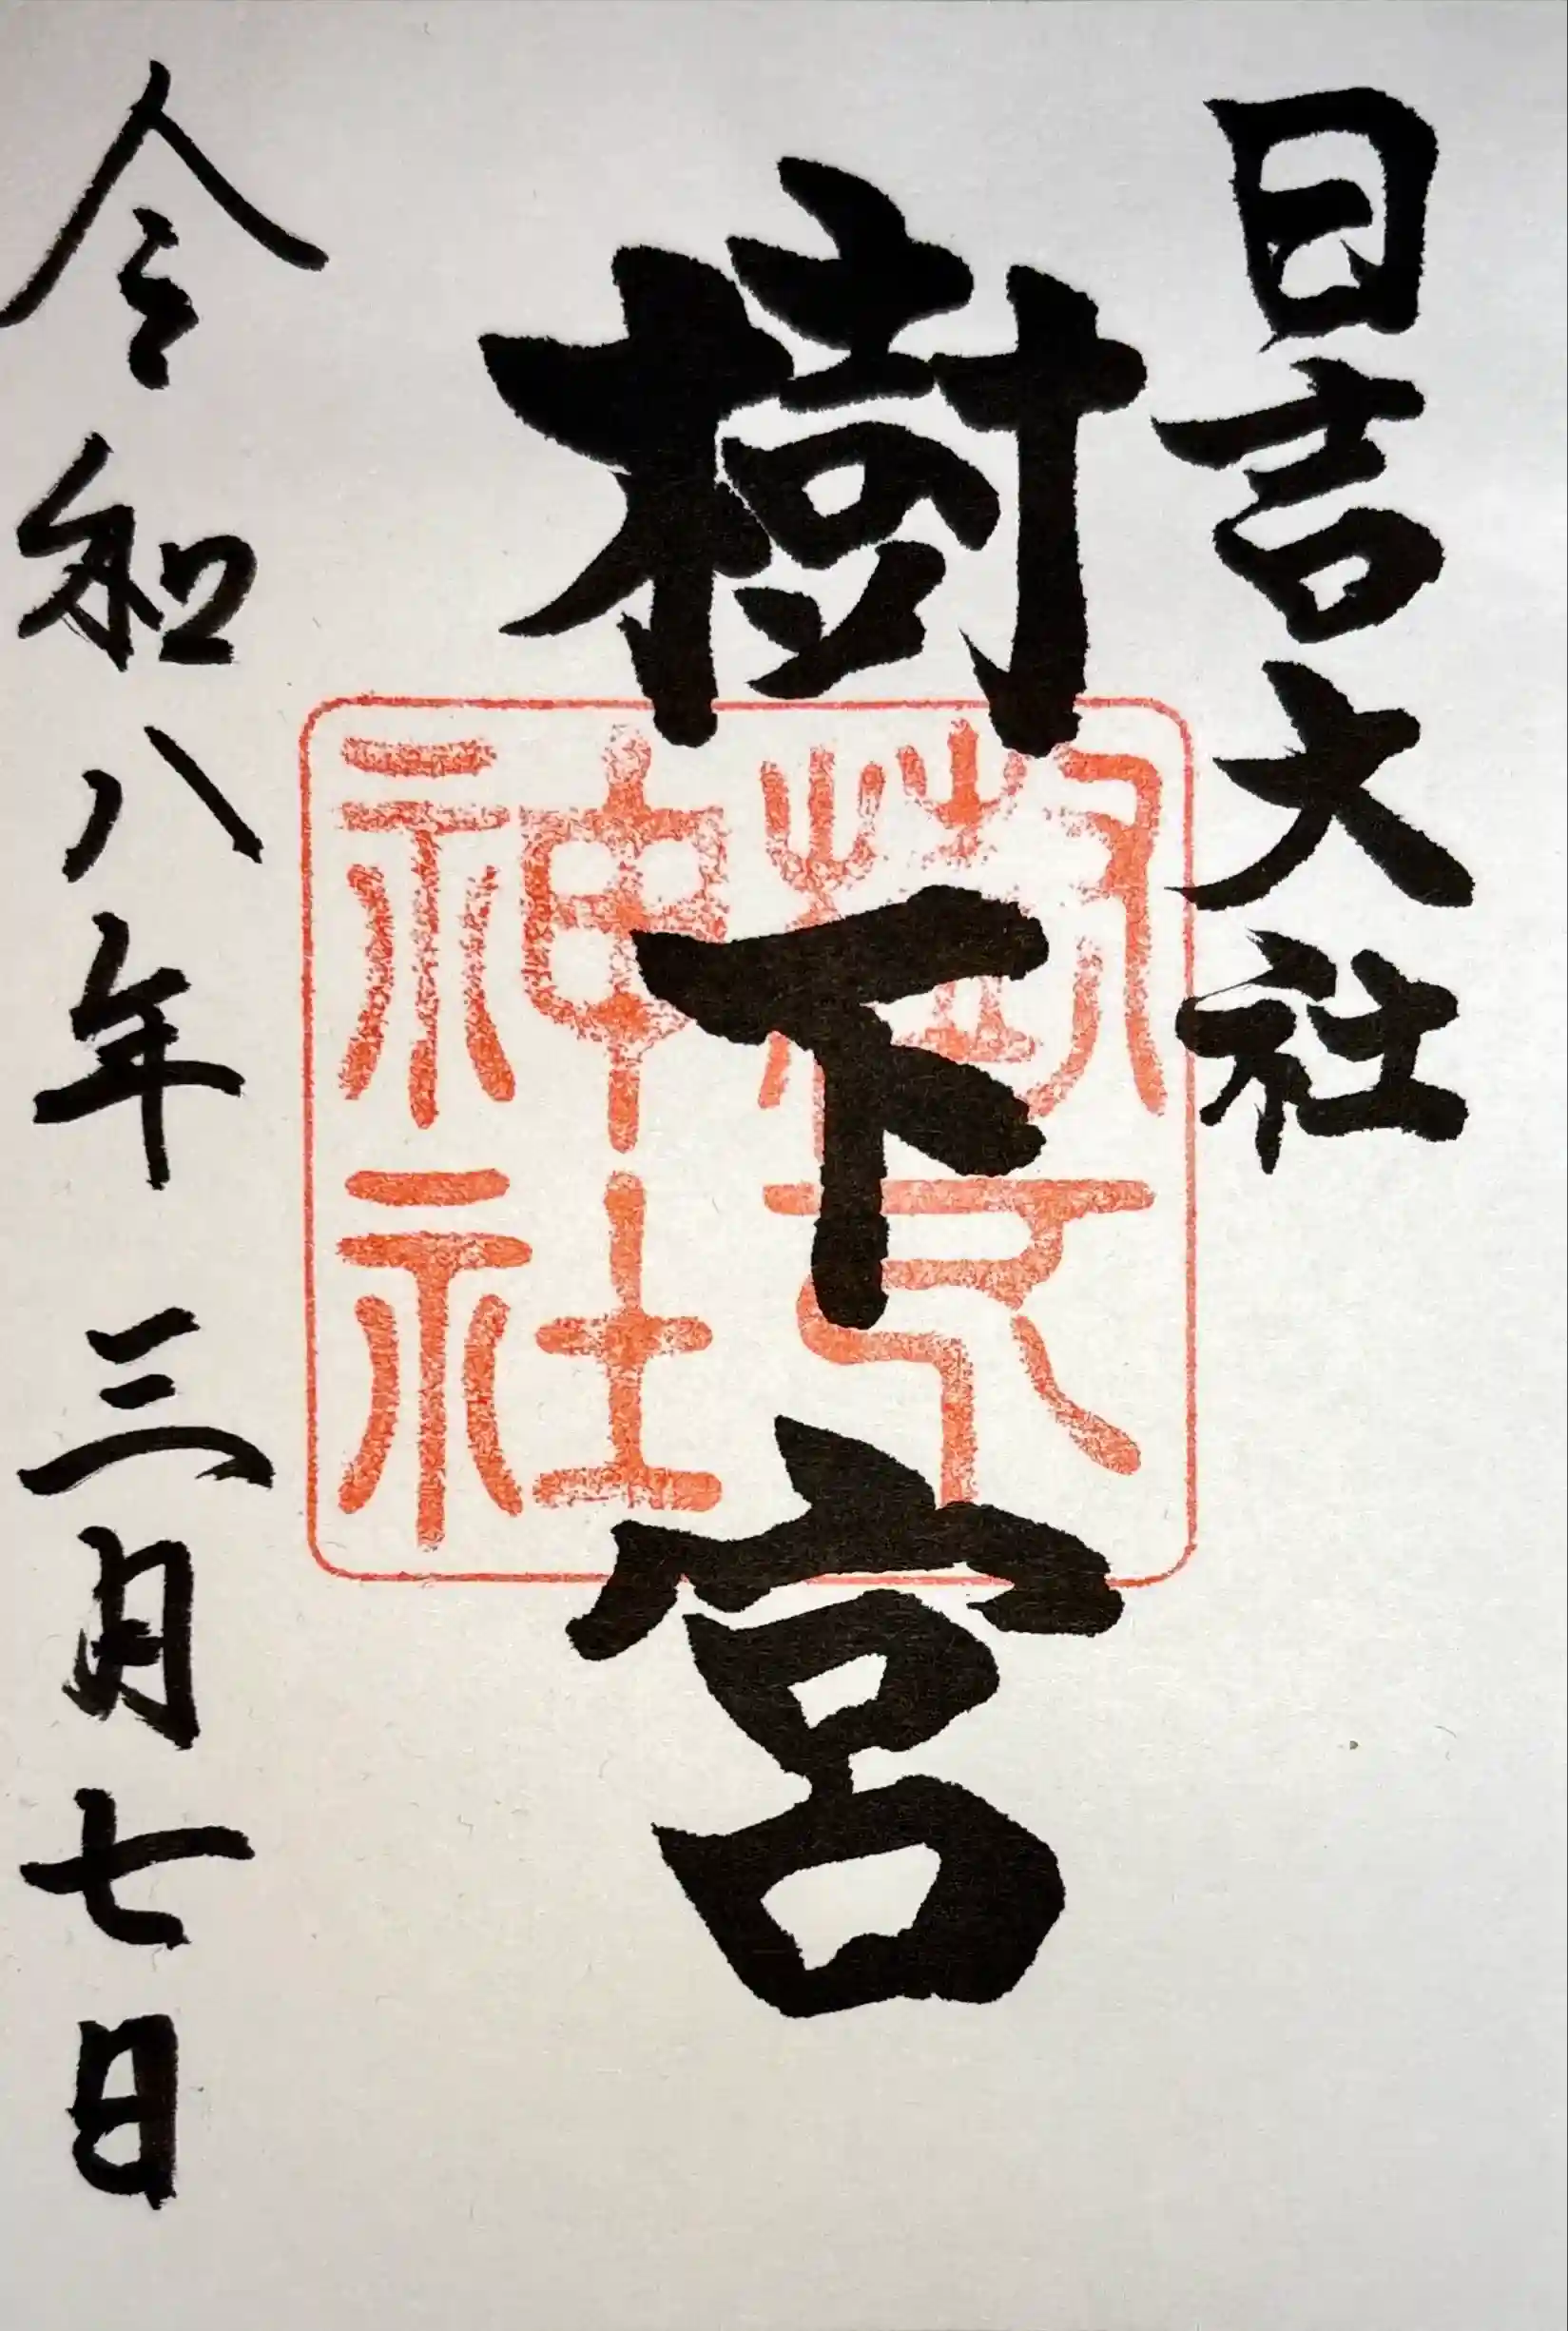 日吉大社
樹下宮
神社
令和八年三月七日